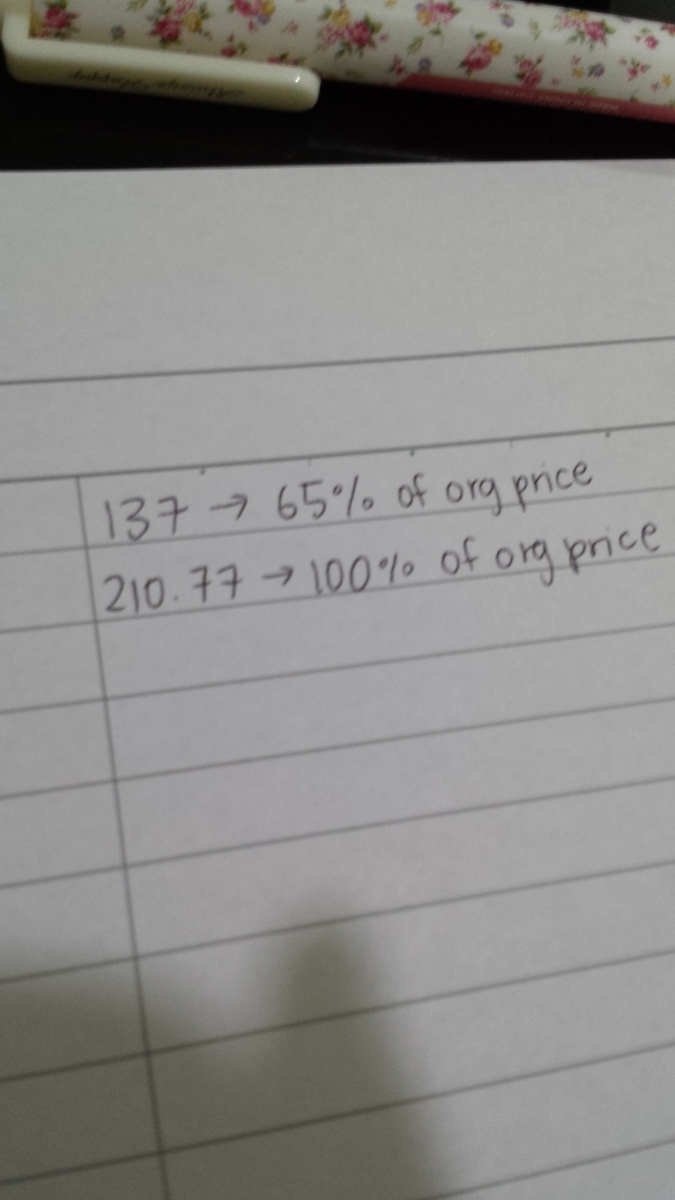 137 → 65% of org price
210.77 → 100% of org price